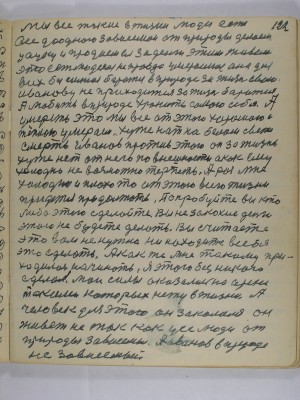 Мы все такие в жизни люди есть 122
Все до одного зависимы от природы делаем
удачу и продаем за деньги этим живем
это есть людская неправда умереть она для
всех бы силами борется в природе за жизнь свою
Иванову не приходится за жизнь бороться
А любить в природе хранить самого себя. А
умереть это мы все от этого хорошего и
теплого умерали. хуже нет на белом свете
смерть Иванов против этого он за жизнь
хуже нет от него по внешности как ему
холодно не возможно терпеть. А раз мне
холодно и плохо то от этого всего жизни
придется продолжать. Попробуйте вы кто
либо этого сделать Вы не за какие деньги
этого не будете делать. Вы считаете
это вам не нужно ни находите в себя
это сделать, Якак те мне такому при-
ходилось начинать, я этого без никого
сделал. мои силы оказались среди
таким которых нету в жизни А
человек для этого он закалялся он
живет не так как усе люди от
природы зависимы. А Иванов в природе
не зависимый